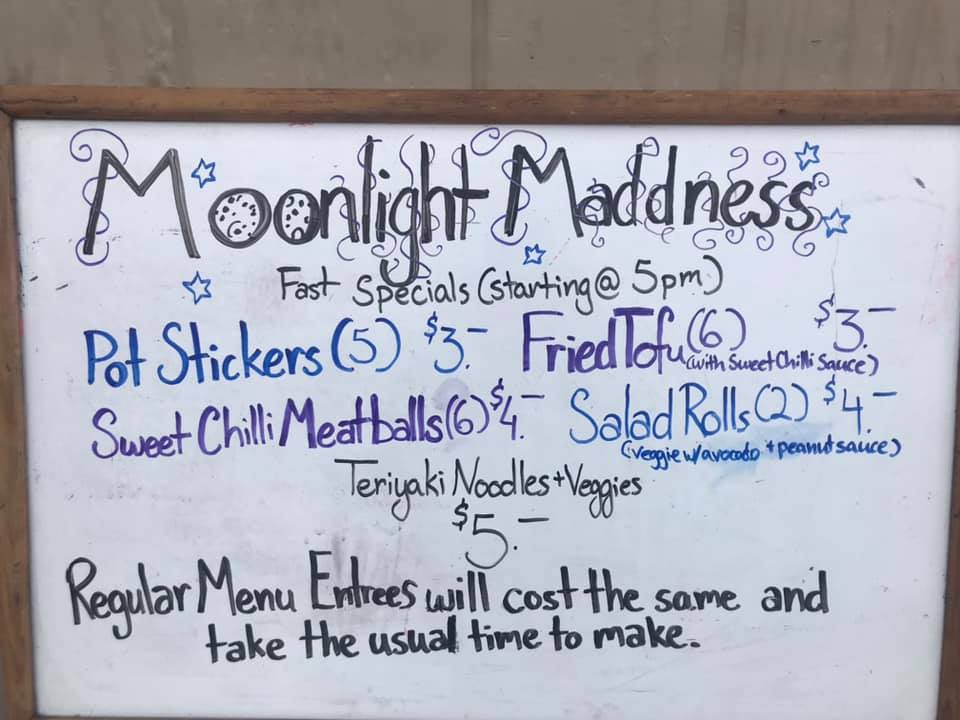 Moonlight Maddness
Fast Specials (starting @ 5pm)
Pot Stickers (5) $3.- Fried Tofu (6) $3.-
(with Sweet Chilli Sauce)
Sweet Chilli Meatballs (6) $4.- Salad Rolls (2) $4.-
(veggie w/avocado + peanut sauce)
Teriyaki Noodles + Veggies
$5.-
Regular Menu Entrees will cost the same and
take the usual time to make.